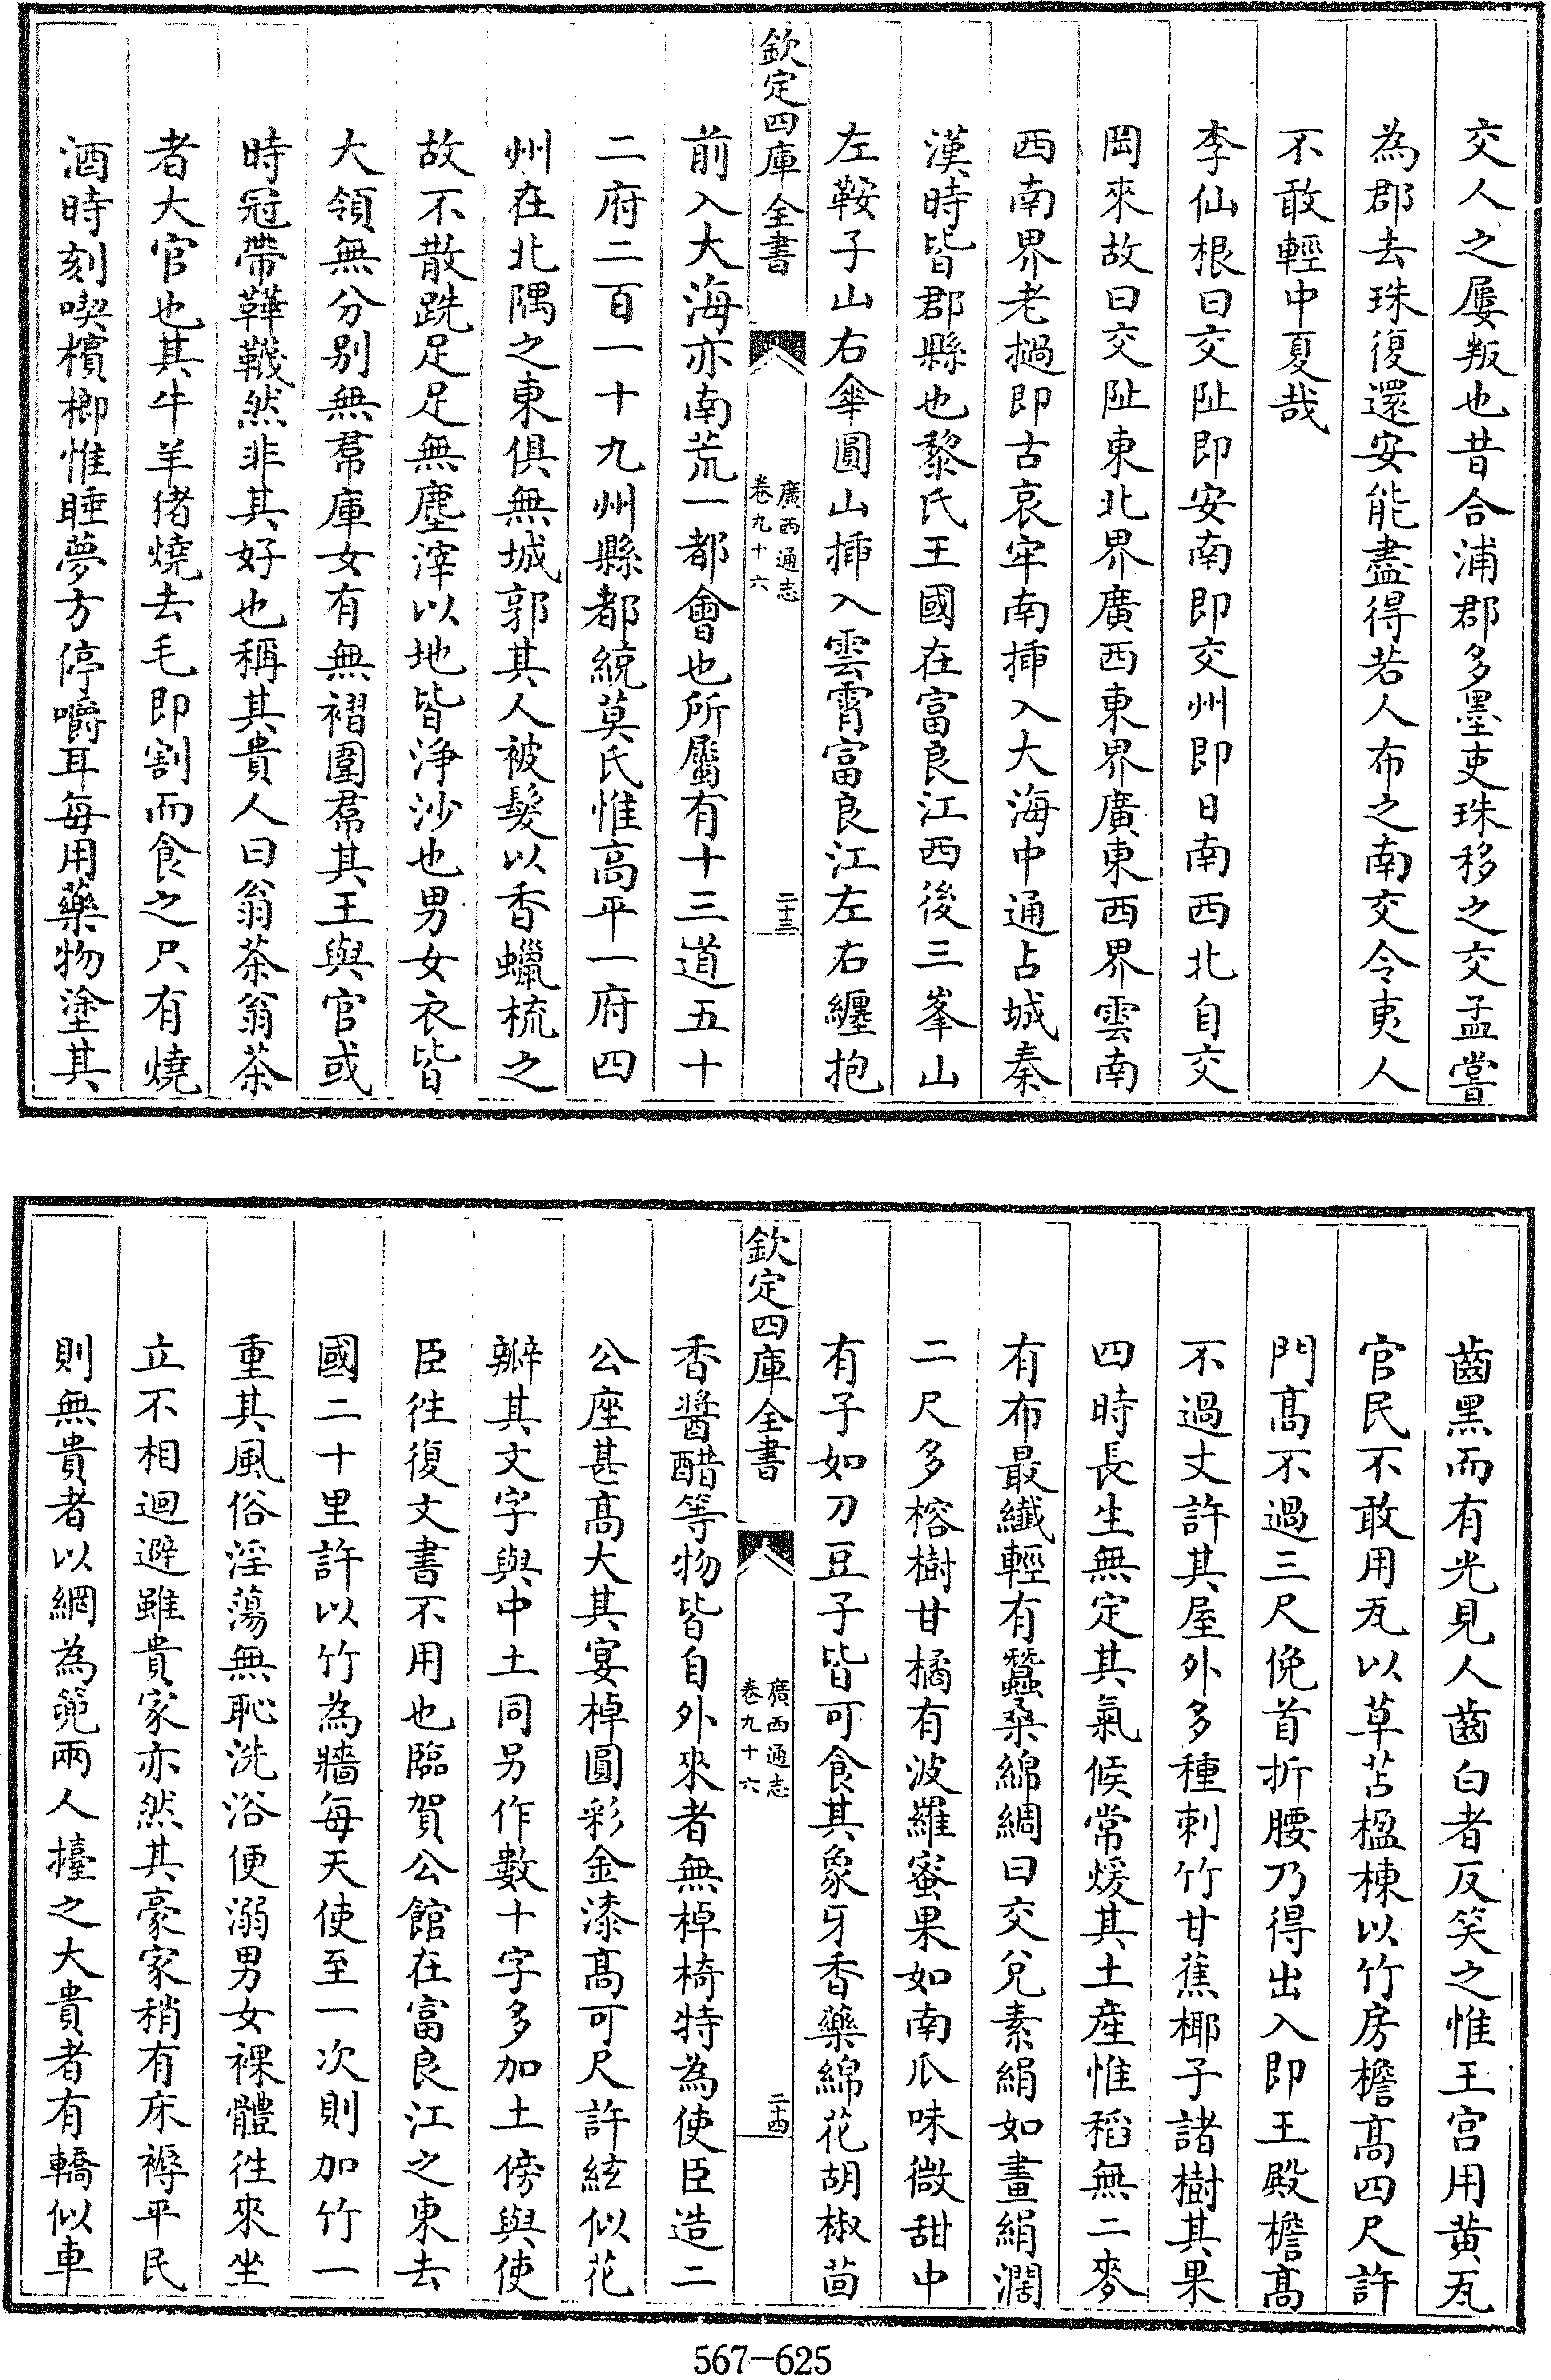 交人之屢叛也昔合浦郡多墨吏珠移之交孟嘗
為郡去珠復還安能盡得若人布之南交令夷人
不敢輕中夏哉
李仙根曰交阯即安南即交州即日南西北自交
岡來故曰交阯東北界廣西東界廣東西界雲南
西南界老撾即古哀牢南揷入大海中通占城秦
漢時皆郡縣也黎氏王國在富良江西後三峯山
左鞍子山右傘圓山揷入雲霄富良江左右纏抱
欽定四庫全書
廣西通志
卷九十六
二十三
前入大海亦南荒一都會也所屬有十三道五十
二府二百一十九州縣都統莫氏惟高平一府四
州在北隅之東俱無城郭其人被髮以香蠟梳之
故不散跣足足無塵滓以地皆淨沙也男女衣皆
大領無分别無帬庫女有無褶圍帬其王與官或
時冠帶鞾韈然非其好也稱其貴人曰翁茶翁茶
者大官也其牛羊猪燒去毛即割而食之只有燒
酒時刻喫檳榔惟睡夢方停嚼耳每用藥物塗其
齒黑而有光見人齒白者反笑之惟王宫用黄瓦
官民不敢用瓦以草苫楹棟以竹房檐髙四尺許
門髙不過三尺俛首折腰乃得出入即王殿檐髙
不過丈許其屋外多種刺竹甘蕉椰子諸樹其果
四時長生無定其氣候常煖其土産惟稻無二麥
有布最纖輕有蠶桑綿綢曰交兌素絹如畫絹濶
二尺多榕樹甘橘有波羅蜜果如南瓜味微甜中
有子如刀豆子皆可食其象牙香藥綿花胡椒茴
欽定四庫全書
廣西通志
卷九十六
二十四
香醬醋等物皆自外來者無棹椅特為使臣造二
公座甚髙大其宴棹圓彩金漆髙可尺許絃似花
瓣其文字與中土同另作數十字多加土傍與使
臣徃復文書不用也臨賀公館在富良江之東去
國二十里許以竹為牆每天使至一次則加竹一
重其風俗淫蕩無恥洗浴便溺男女裸體徃來坐
立不相迴避雖貴家亦然其豪家稍有床褥平民
則無貴者以網為篼兩人擡之大貴者有轎似車
567-625